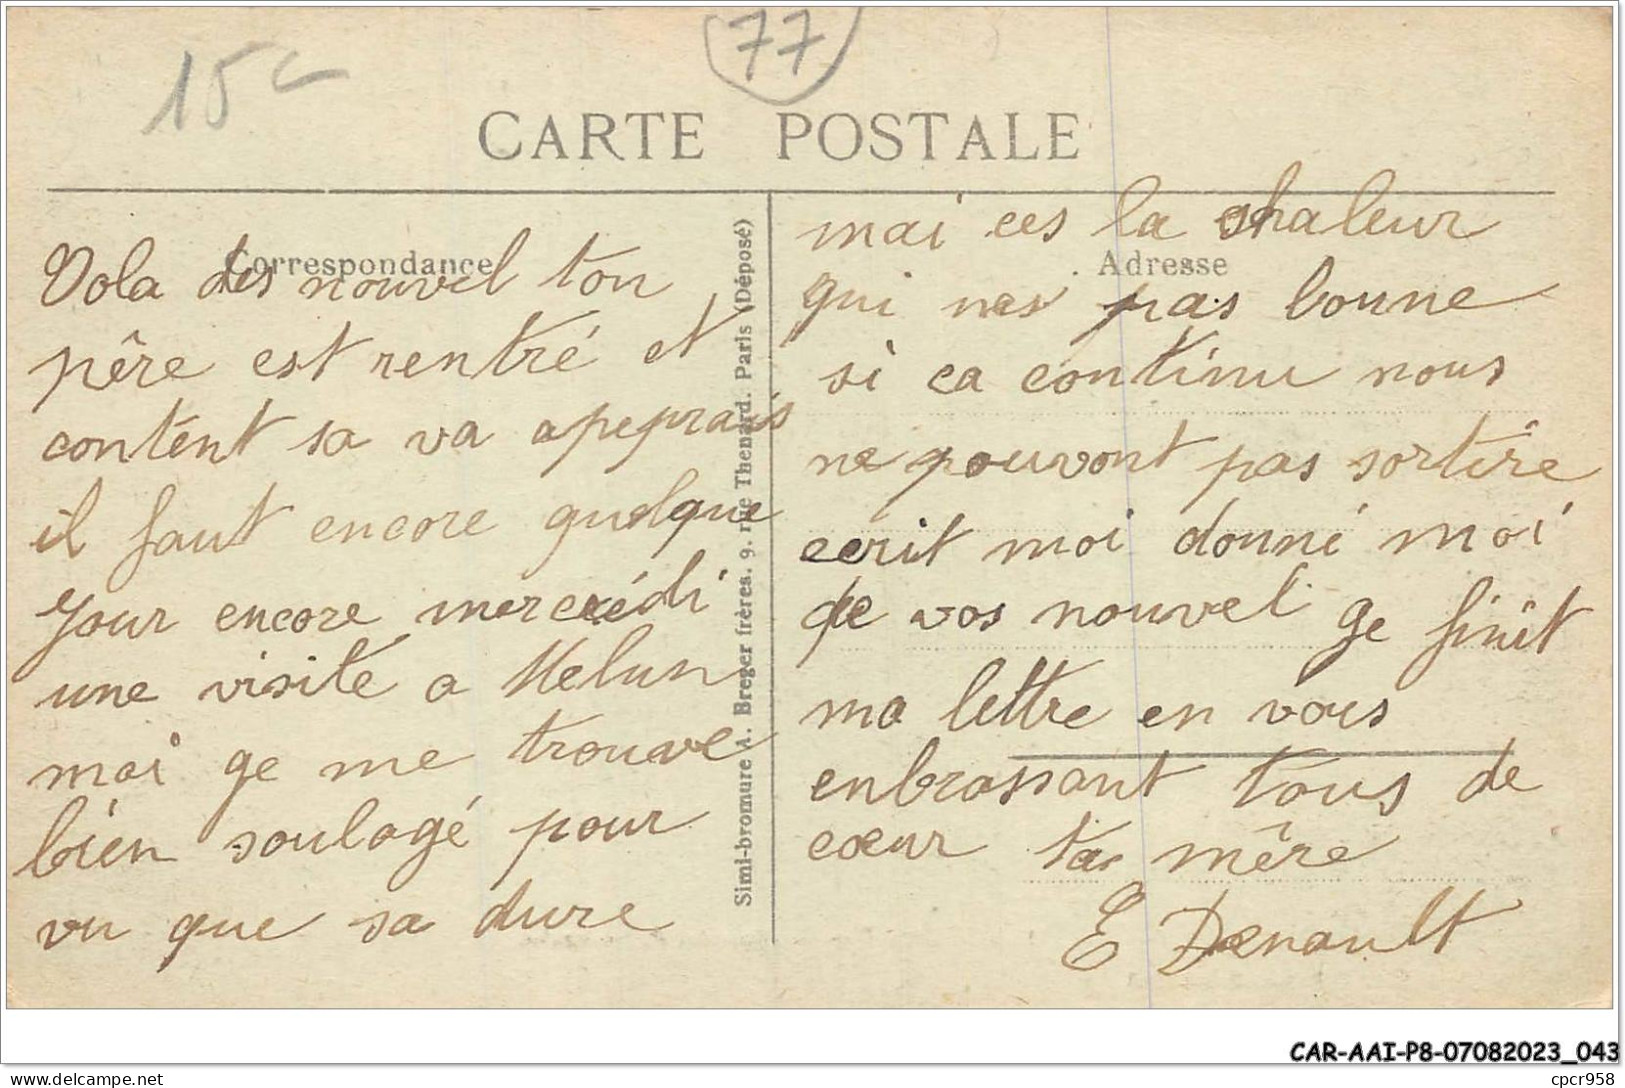 15 c
77
CARTE POSTALE
Correspondance
Vola des nouvel ton
père est rentré et
content sa va apeprais
il faut encore quelque
Jour encore mercrédi
une visite a Melun
moi ge me trouve
bien soulagé pour
vu que sa dure
Simi-bromure A. Breger frères. 9. rue Thenard. Paris (Déposé)
Adresse
mai ces la chaleur
qui nes pas bonne
si ca continu nous
ne pouvont pas sortire
ecrit moi donné moi
de vos nouvel ge finit
ma lettre en vous
enbrassant tous de
cœur ta mère
E Denault
CAR-AAI-P8-07082023_043
delcampe.net
cpcr958